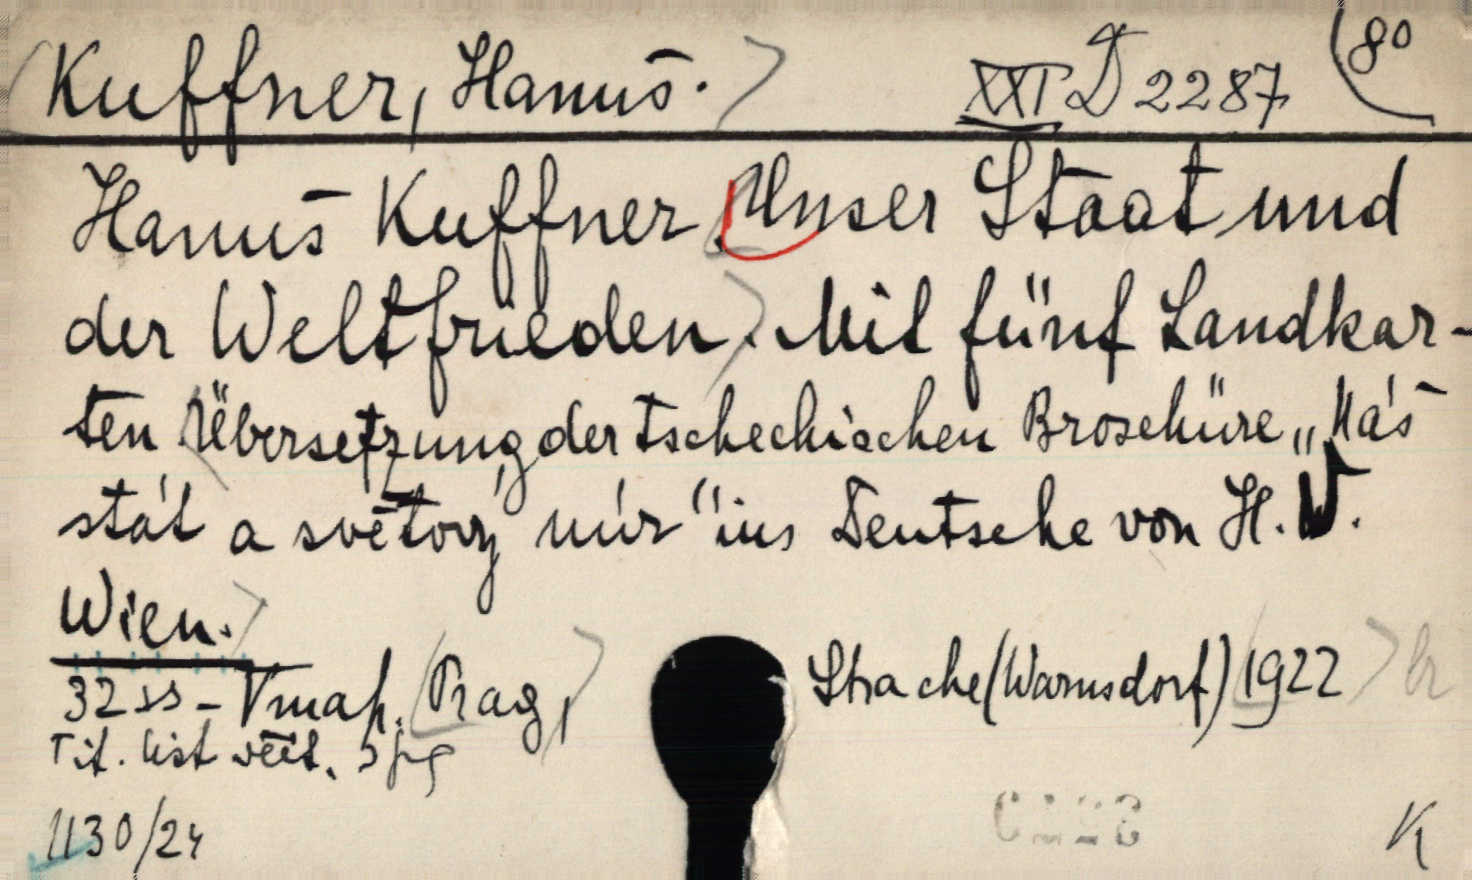 Kuffner, Hanuš. XXI D 2287 8°
Hanuš Kuffner. Unser Staat und
der Weltfrieden. Mit fünf Landkar-
ten Übersetzung der tschechischen Broschüre „Náš
stát a světový mír" ins Deutsche von H. W.
Wien.
32 ss - V map. Prag, Strache (Warnsdorf) 1922
Tit. list
1130/24 K